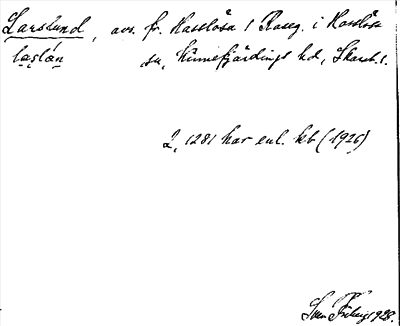 Larslund, avs. fr. Hasslösa 1 Raseg. i Hasslösa
la̱şlán̠ sn, Kinnefjärdings hd, Skarab. l.
2, 1281 har enl. kb (1926)
Sven Fridung 1928.